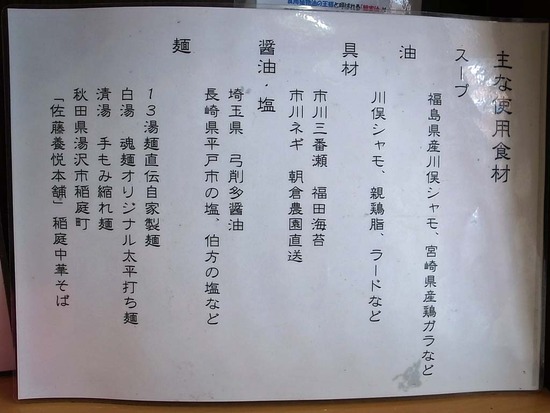 主な使用食材
スープ
福島県産川俣シャモ、宮崎県産鶏ガラなど
油
川俣シャモ、親鶏脂、ラードなど
具材
市川三番瀬　福田海苔
市川ネギ　朝倉農園直送
醤油・塩
埼玉県　弓削多醤油
長崎県平戸市の塩、伯方の塩など
麺
１３湯麺直伝自家製麺
白湯　魂麺オリジナル太平打ち麺
清湯　手もみ縮れ麺
秋田県湯沢市稲庭町
「佐藤養悦本舗」稲庭中華そば